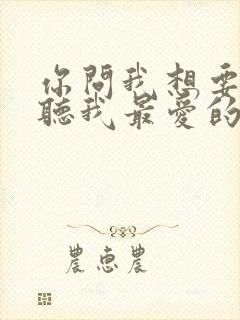 你問我想要
聽我最愛的
農惠農